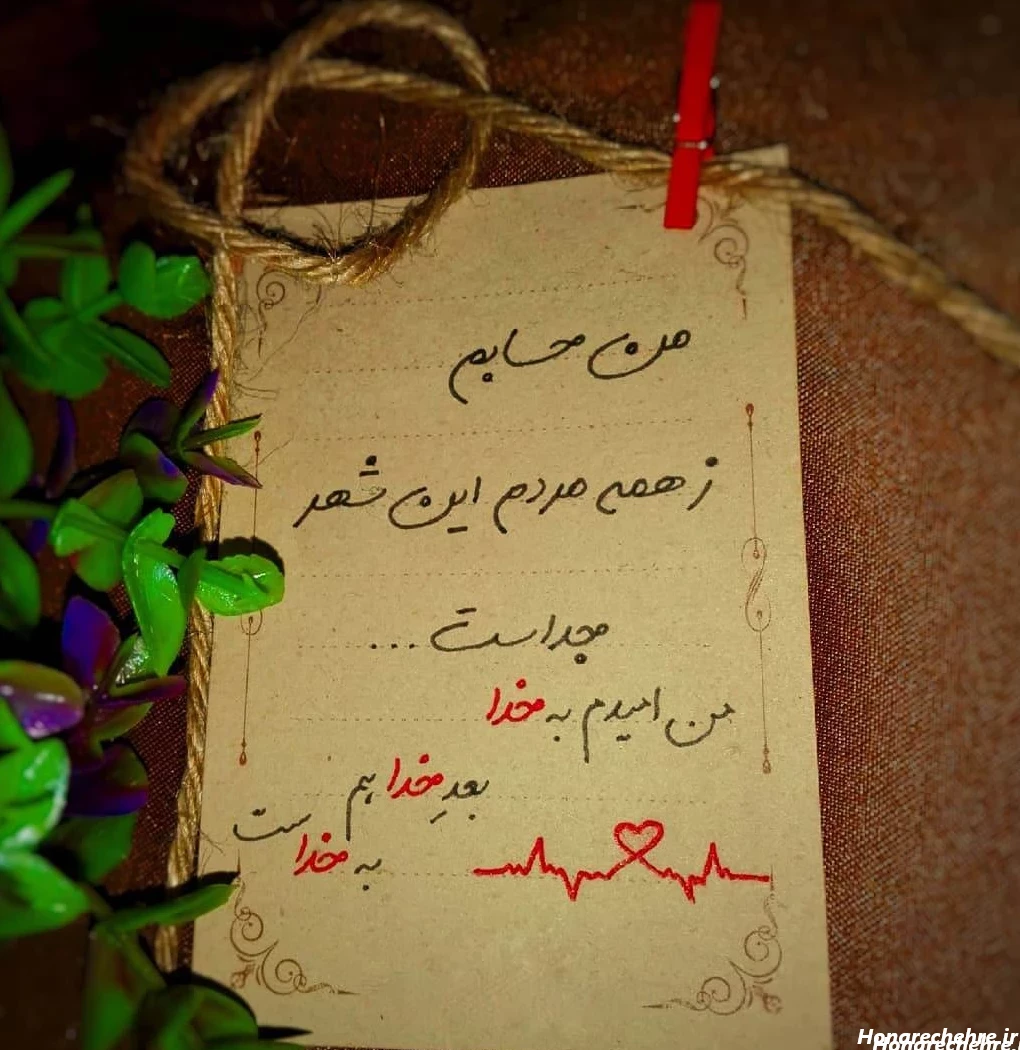 من حسابم
ز همه مردم این شهر
جداست...
من امیدم به خدا
بعدِ خدا هم
ست
به خدا
Honarechehre.ir
Honarechehre.ir